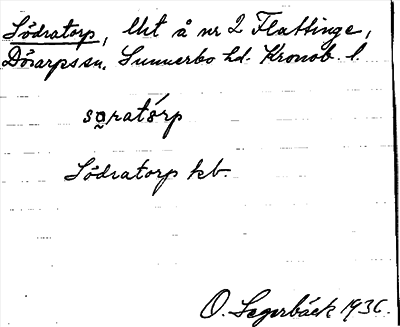 Södratorp, lht å nr 2 Flattinge,
Dörarps sn. Sunnerbo hd. Kronob. l.
sǫratórp
Södratorp kb.
O. Segerbäck 1936.